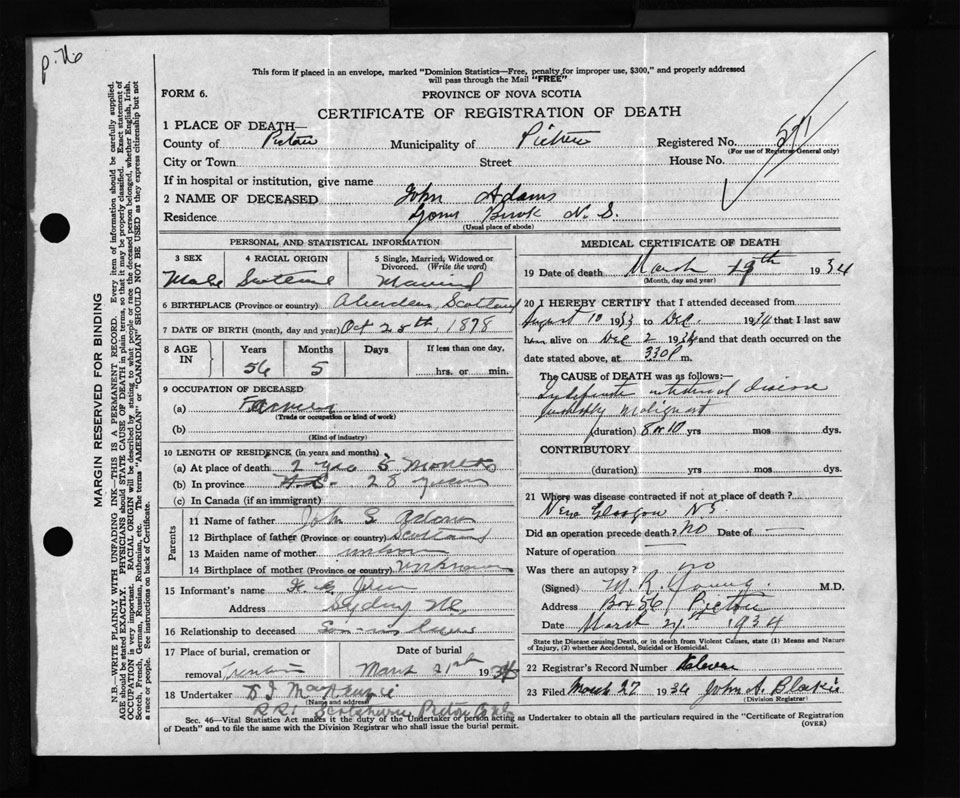 p. 76
This form if placed in an envelope, marked "Dominion Statistics—Free, penalty for improper use, $300," and properly addressed
will pass through the Mail "FREE"
FORM 6.
PROVINCE OF NOVA SCOTIA
CERTIFICATE OF REGISTRATION OF DEATH
1 PLACE OF DEATH—
County of Pictou Municipality of Pictou Registered No. 571
(For use of Registrar General only)
City or Town Street House No.
If in hospital or institution, give name
2 NAME OF DECEASED John Adams
Residence Lyons Brook N. S.
(Usual place of abode)
PERSONAL AND STATISTICAL INFORMATION
3 SEX 4 RACIAL ORIGIN 5 Single, Married, Widowed or
Divorced. (Write the word)
Male Married
6 BIRTHPLACE (Province or country) Aberdeen, Scotland
7 DATE OF BIRTH (month, day and year) Oct 28th, 1878
8 AGE IN Years Months Days If less than one day,
56 5 hrs. or min.
9 OCCUPATION OF DECEASED
(a) Farmer
(Trade or occupation or kind of work)
(b)
(Kind of industry)
10 LENGTH OF RESIDENCE (in years and months)
(a) At place of death 2 yrs 5 months
(b) In province 28 years
(c) In Canada (if an immigrant)
Parents
11 Name of father John S. Adams
12 Birthplace of father (Province or country) Scotland
13 Maiden name of mother unknown
14 Birthplace of mother (Province or country) Unknown
15 Informant's name
Address Sydney N.S.
16 Relationship to deceased Son-in-law
17 Place of burial, cremation or
removal
Date of burial
March 21st 1934
18 Undertaker D. J. MacKenzie
(Name and address)
R.R.1 Scotsburn Pictou
MEDICAL CERTIFICATE OF DEATH
19 Date of death March 19th 1934
(Month, day and year)
20 I HEREBY CERTIFY that I attended deceased from
August 10 1933 to Dec. 1934 that I last saw
him alive on Dec 2 1934 and that death occurred on the
date stated above, at 330 P m.
The CAUSE of DEATH was as follows:—
Indefinite intestinal disease
probably malignant
(duration) 8 or 10 yrs mos dys.
CONTRIBUTORY
(duration) yrs mos dys.
21 Where was disease contracted if not at place of death?
New Glasgow NS
Did an operation precede death? No Date of —
Nature of operation —
Was there an autopsy? no
(Signed) M. R. Young M.D.
Address Box 56 Pictou
Date March 21st 1934
State the Disease causing Death, or in death from Violent Causes, state (1) Means and Nature
of Injury, (2) whether Accidental, Suicidal or Homicidal.
22 Registrar's Record Number Eleven
23 Filed March 27 1934 John A. Blaikie
(Division Registrar)
Sec. 46—Vital Statistics Act makes it the duty of the Undertaker or person acting as Undertaker to obtain all the particulars required in the "Certificate of Registration
of Death" and to file the same with the Division Registrar who shall issue the burial permit. (OVER)
MARGIN RESERVED FOR BINDING
N.B.—WRITE PLAINLY WITH UNFADING INK—THIS IS A PERMANENT RECORD. Every item of information should be carefully supplied.
AGE should be stated EXACTLY. PHYSICIANS should STATE CAUSE OF DEATH in plain terms, so that it may be properly classified. Exact statement of
OCCUPATION is very important. RACIAL ORIGIN will be described by stating to what people or race the deceased person belonged, whether English, Irish,
Scotch, French, German, Russian, Ruthenian, etc. The terms "AMERICAN" or "CANADIAN" SHOULD NOT BE USED as they express citizenship but not
a race or people. See instructions on back of Certificate.